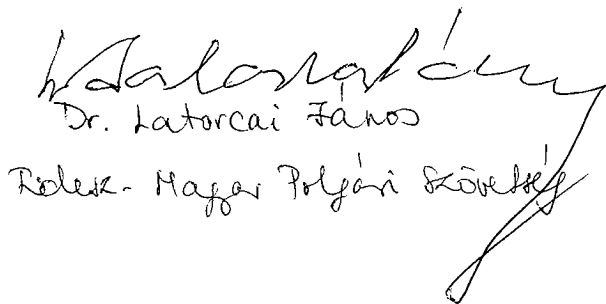 Dr. Latorcai János
Fidesz - Magyar Polgári Szövetség